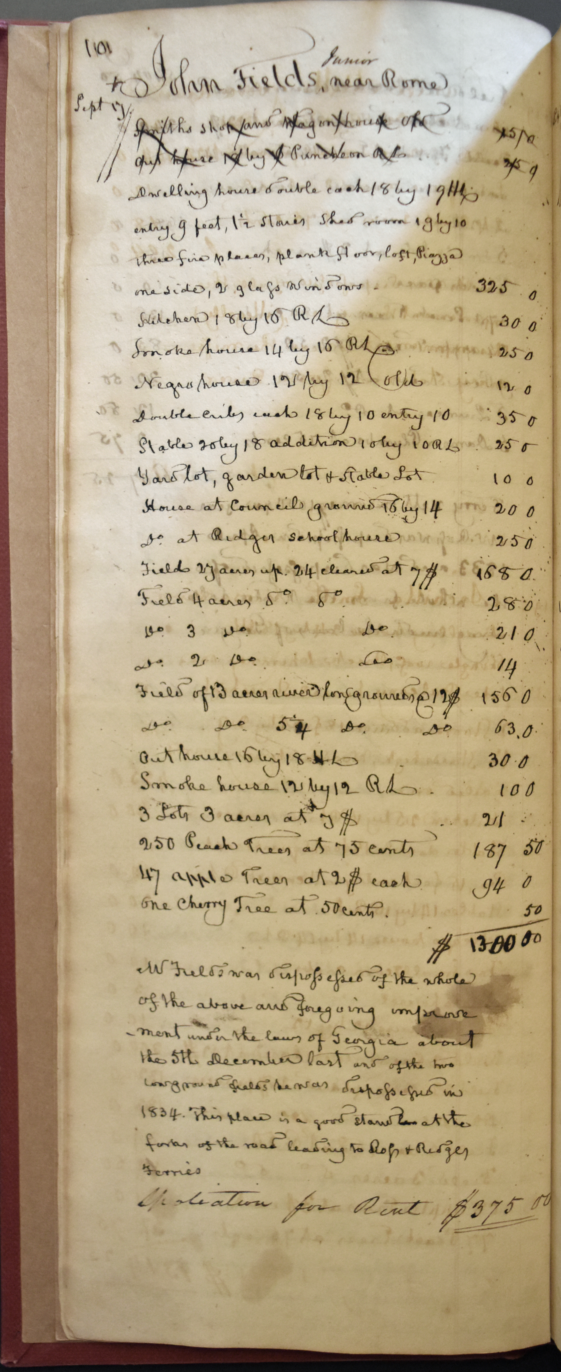 101
Junior
John Fields, near Rome
Sept 17
Smiths shop and wagon house
out house by Puncheon RL
Dwelling house double each 18 by 19 HL
entry 9 feet, 1½ Stories Shed room 19 by 10
three fire places, plank floor, loft, Piazza
one side, 2 glass windows 325 0
Kitchen 18 by 16 RL 30 0
Smoke house 14 by 16 RL 25 0
Negro house 12 by 12 old 12 0
Double cribs each 18 by 10 entry 10 35 0
Stable 20 by 18 addition 10 by 10 RL 25 0
Yard lot, garden lot & Stable Lot 10 0
House at Council ground 16 by 14 20 0
Do at Ridges school house 25 0
Field 27 acres up. 24 cleared at 7$ 168 0
Field 4 acres do do 28 0
Do 3 Do Do 21 0
Do 2 Do Do 14
Field of 13 acres river low grounds @ 12$ 156 0
Do Do 5¼ Do Do 63.0
Out house 16 by 18 HL 30 0
Smoke house 12 by 12 RL 10 0
3 Lots 3 acres at 7$ 21
250 Peach Trees at 75 cents 187 50
47 apple Trees at 2$ each 94 0
One Cherry Tree at 50 cents. 50
$ 1300 00
Mr Fields was dispossessed of the whole
of the above and foregoing improve
ment under the laws of Georgia about
the 5th December last and of the two
low ground fields he was dispossessed in
1834. This place is a good stand at the
forks of the road leading to Ross & Ridges
Ferries
Spoliation for Rent $375 00